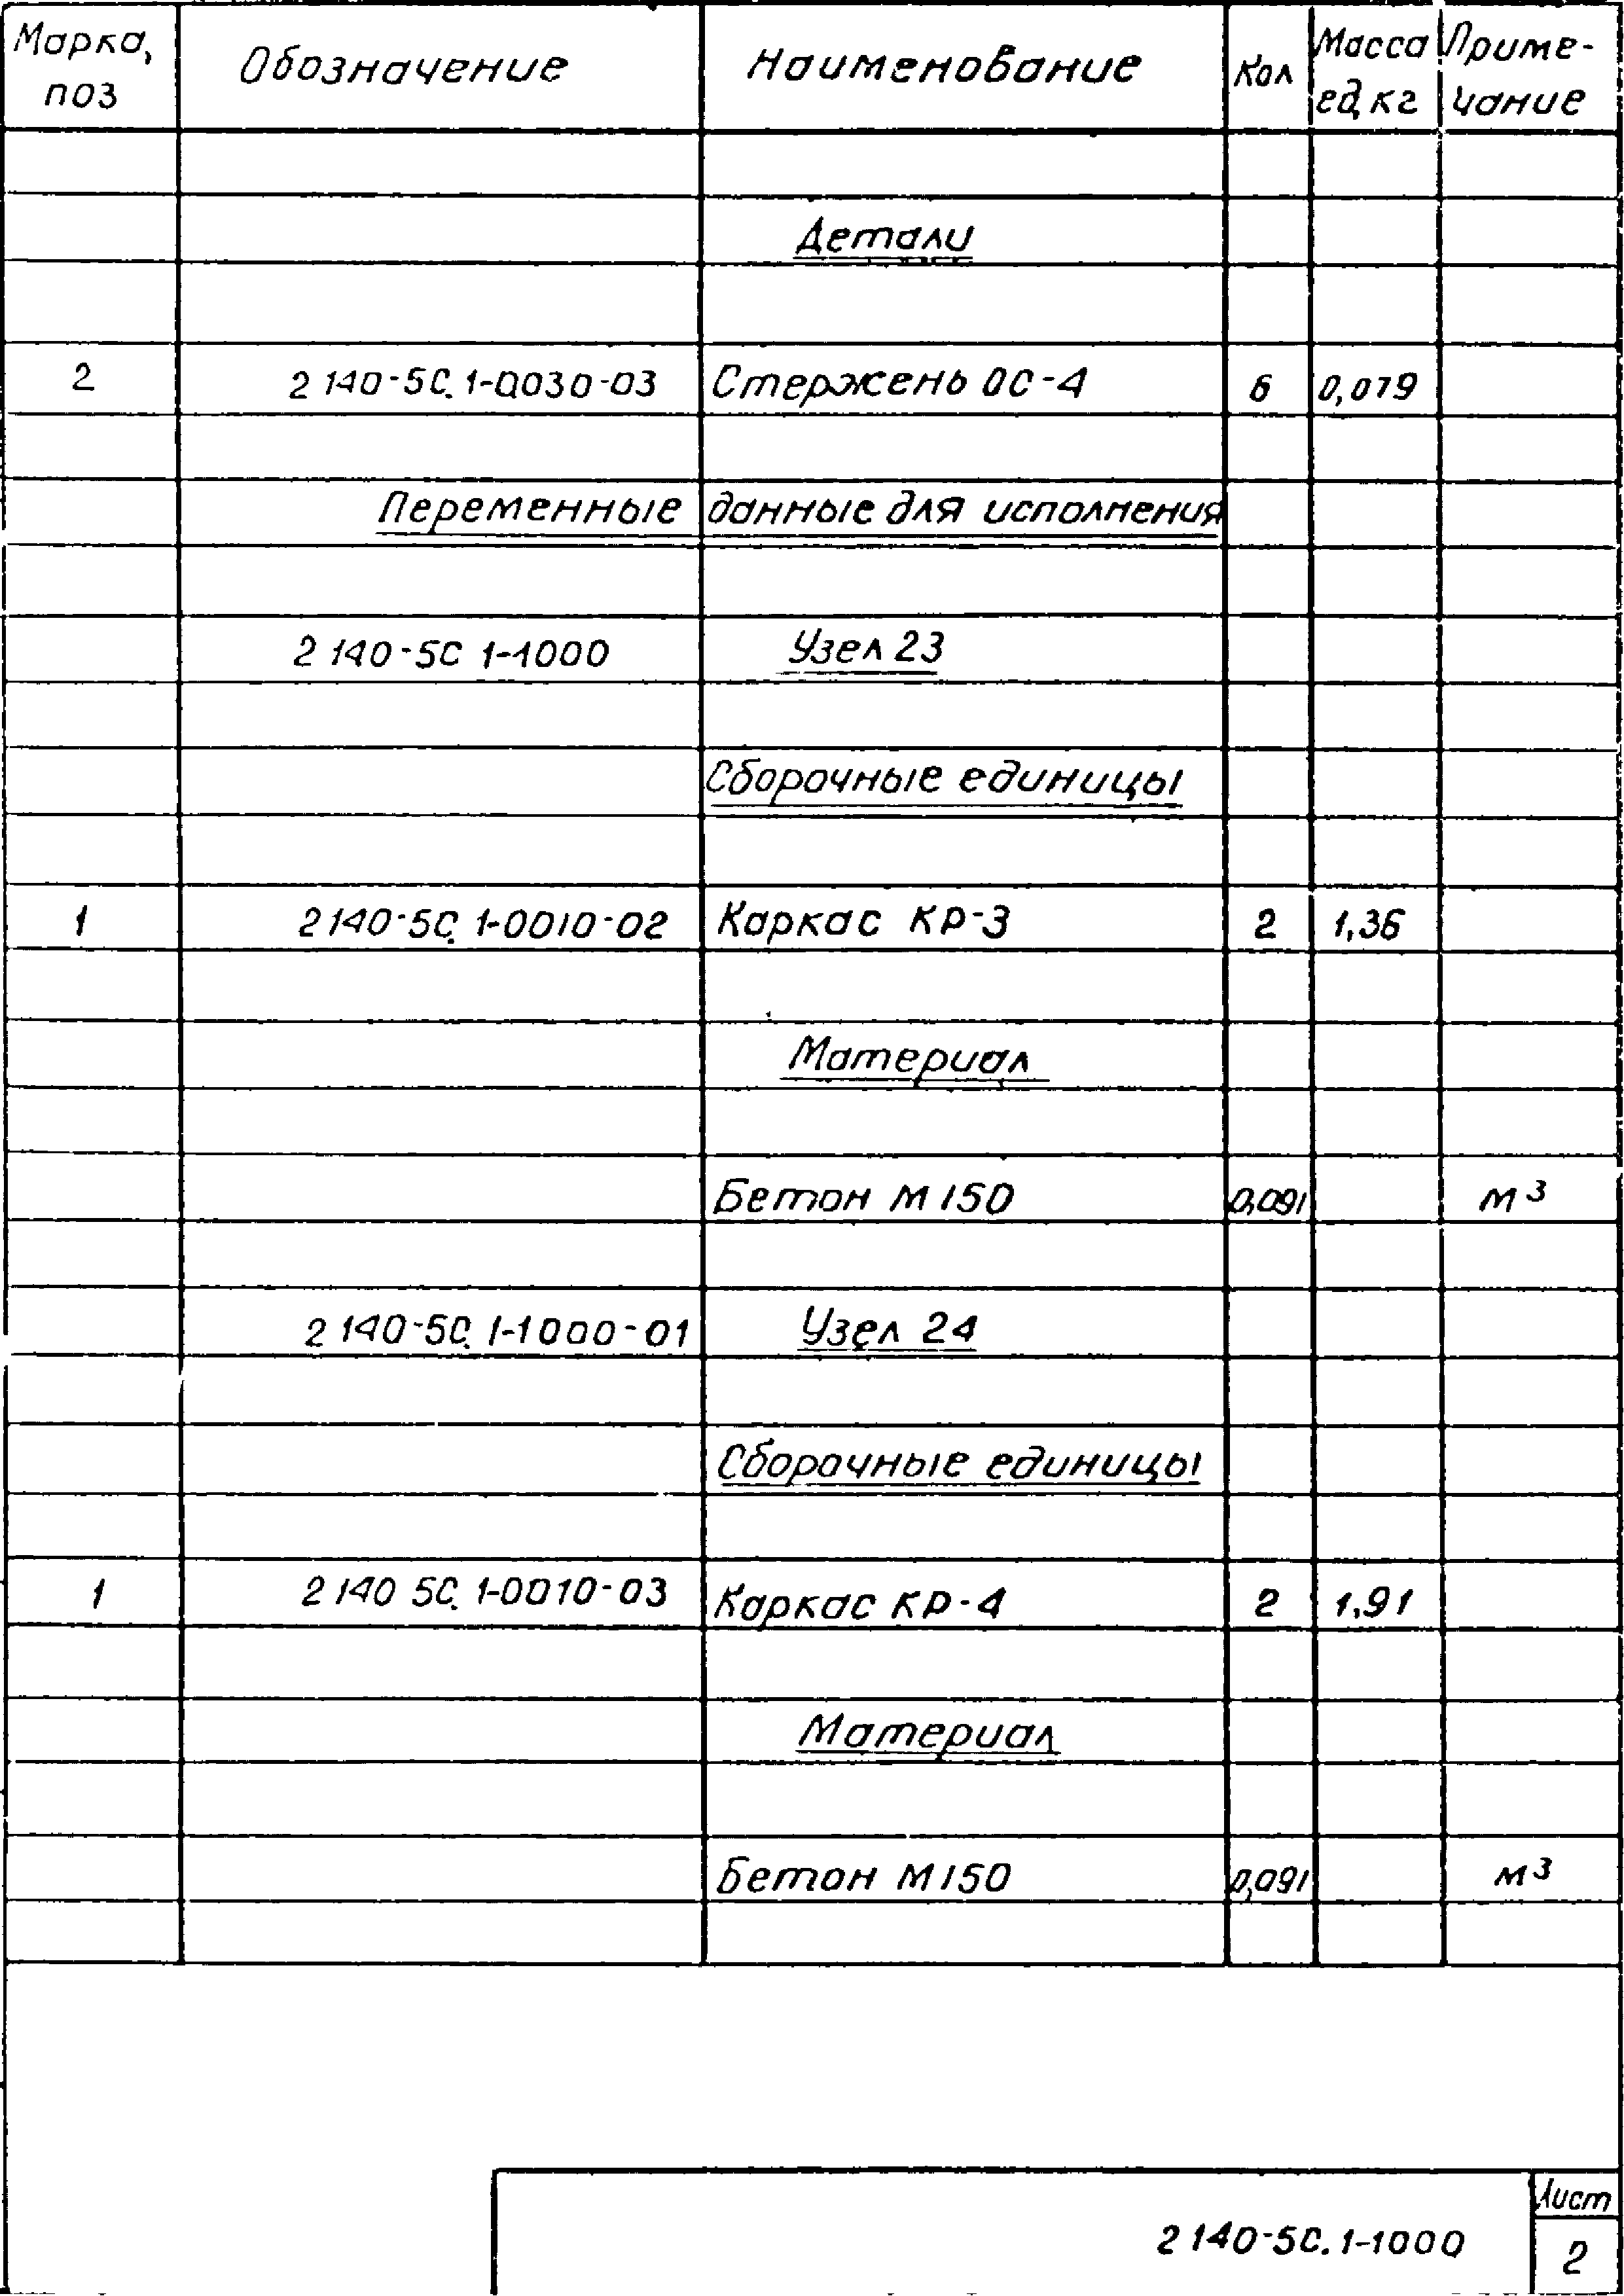 Марка, поз Обозначение Наименование Кол Масса ед, кг Приме-чание
Детали
2 2 140-5С. 1-0030-03 Стержень ОС-4 6 0,079
Переменные данные для исполнения
2 140-5С 1-1000 Узел 23
Сборочные единицы
1 2 140-5С. 1-0010-02 Каркас КР-3 2 1,36
Материал
Бетон М 150 0,091 м³
2 140-5С. 1-1000-01 Узел 24
Сборочные единицы
1 2 140 5С. 1-0010-03 Каркас КР-4 2 1,91
Материал
Бетон М 150 0,091 м³
Лист
2 140-5С. 1-1000 2